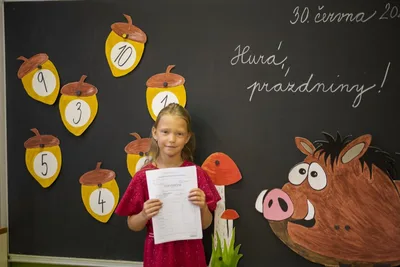 30. června 20
Hurá,
prázdniny!
10
9
3
1
5
4